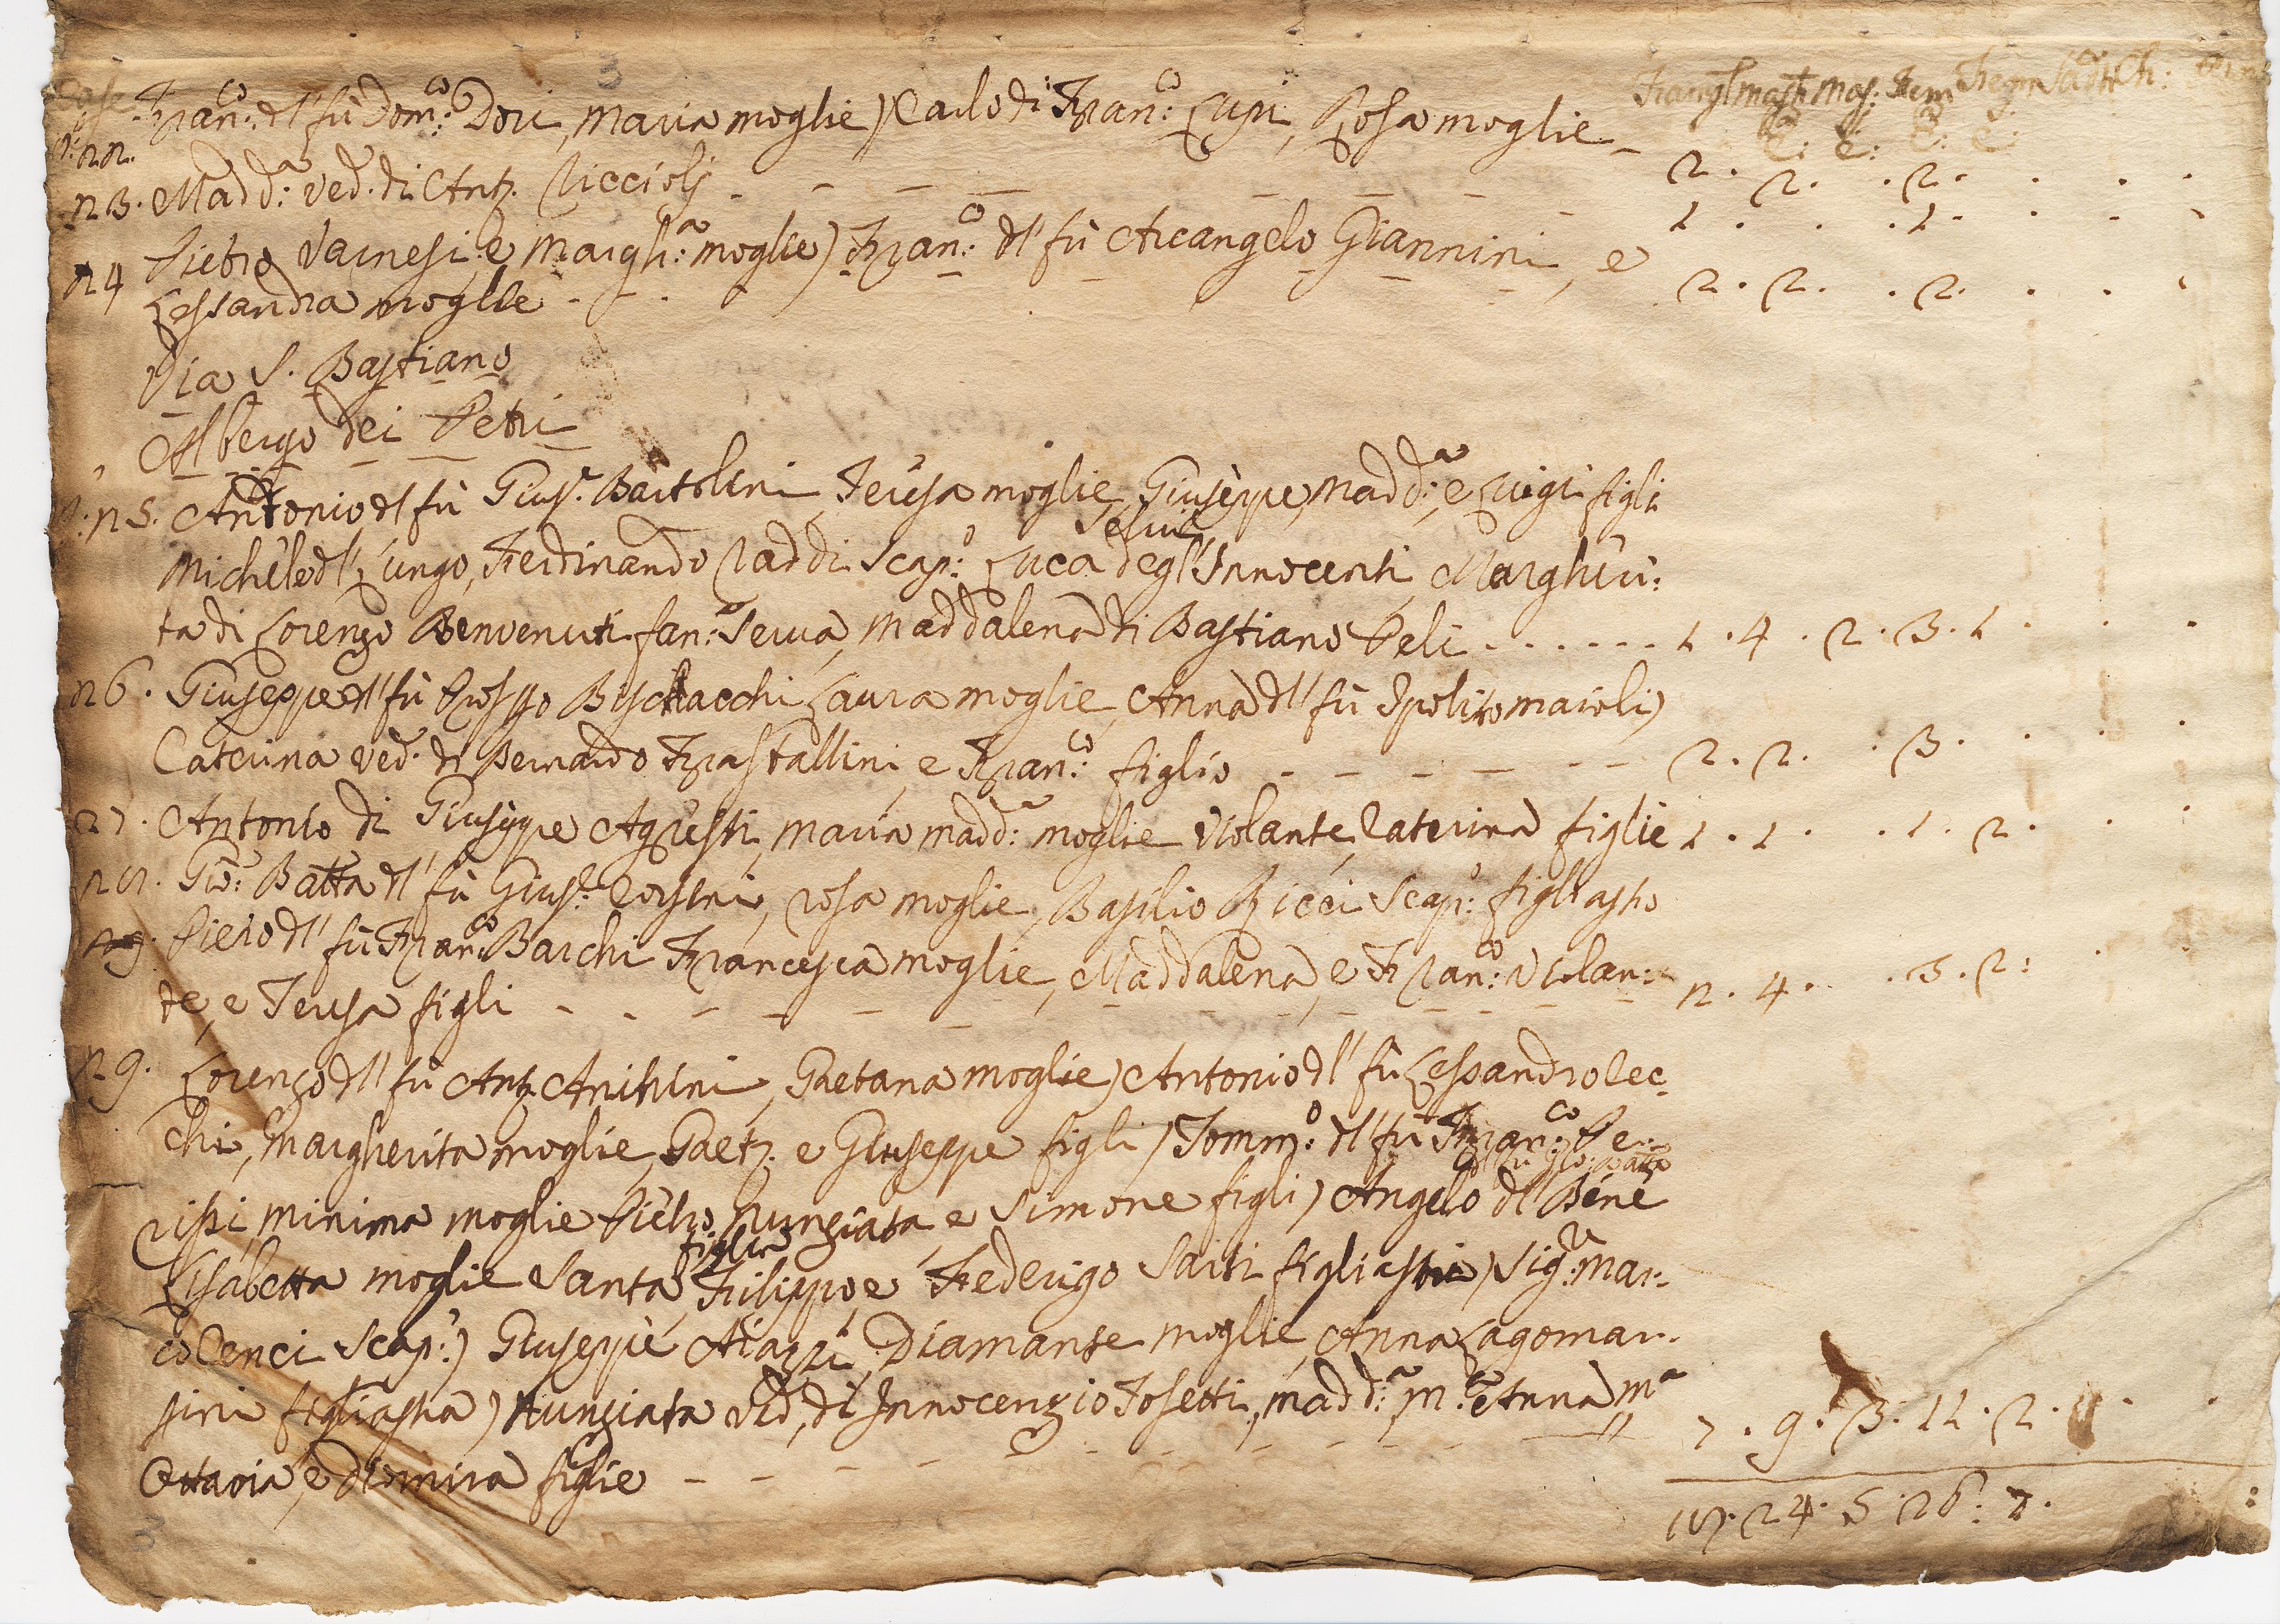 3
Case Fran:co dl' fù Dom:co Dori, Maria moglie) Carlo di Fran:co Lupi, Rosa moglie
Famigl Masch Mas: Fem Fem Sacer Ch:
n: 22. C: C: C: C:
2. 2. . 2. . . .
23. Madd:a ved. di Ant. Riccioli - - - - - - - 1 . . . 1 . . . .
24 Pietro Varnesi, e Margh:a moglie) Fran:co dl' fù Arcangelo Giannini, e
Lessandra moglie - - . - 2. 2. . 2. . . .
Via S. Bastiano
Albergo dei Petri
n: 25. Antonio dl fù Gius.e Bartolini, Teresa moglie, Giuseppe, Madd:a, e Luigi figli
Michele dl' Lungo, Ferdinando Taddi Scap:o Luca degl' Innocenti Servie, Margheri:
ta di Lorenzo Benvenuti fan: Serva, Maddalena di Bastiano Peli ...... 1 . 4 . 2 . 3 . 1 . . .
26. Giuseppe dl' fù Prospo Bischacchi Laura moglie, Anna dl' fù Ipolito Maioli)
Caterina ved. di Bernardo Frastallini, e Fran:co figlio - - - - - - 2. 2. . 3. . . .
27. Antonio di Giuseppe Agresti, Maria Madd:a moglie Violante, Caterina figlie 1 . 1 . . 1 . 2 . . .
28. Gio: Batta dl' fù Gius.e Corsini, rosa moglie, Basilio Ricci Scap:o figliastro
29. Piero dl' fù Fran:co Barchi Francesca moglie, Maddalena, e Fran:co Violan:
te, e Teresa figli - - - - - - - - - - 2 . 4 . . 3 . 2 : . .
29. Lorenzo dl' fù Ant. Anichini, Gaetana moglie) Antonio dl' fù Lessandro Cec:
chi, Margherita moglie, Gaet. e Giuseppe figli) Tomm:o dl' fù Fran:co Pe:
dl' fù Gio: Batta
rissi, minima moglie Pietro, Nunziata e Simone figli) Angelo dl' Bene
figlia
Lisabetta moglie Santa, Filippo, e Federigo Saiti figliastri) Sig:r Mar:
co Cenci Scap:o) Giuseppe Aiazzi, Diamante moglie, Anna Lagomar:
sini figliastra) Nunziata ved. di Innocenzio Tosetti, Madd:a M:a e Anna M:a
Ottavia, e Dlomira figlie - - - - - - - 7 . 9 . 3 . 11 . 2 . . .
17. 24. 5. 26: 7.
3